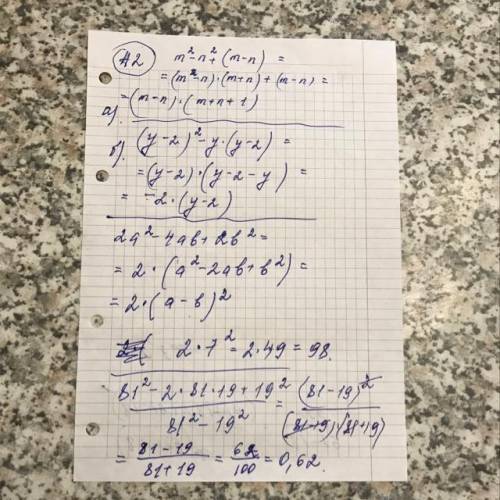 А2 m²-n²+(m-n) =
= (m²-n)·(m+n)+(m-n) =
а). = (m-n)·(m+n+1)
б). (y-2)²-y·(y-2) =
= (y-2)·(y-2-y) =
= -2·(y-2)
2a²-4ab+2b² =
= 2·(a²-2ab+b²) =
= 2·(a-b)²
2·7² = 2·49 = 98.
(81²-2·81·19+19²)/(81²-19²) = (81-19)²/((81-19)·(81+19))
= (81-19)/(81+19) = 62/100 = 0,62.